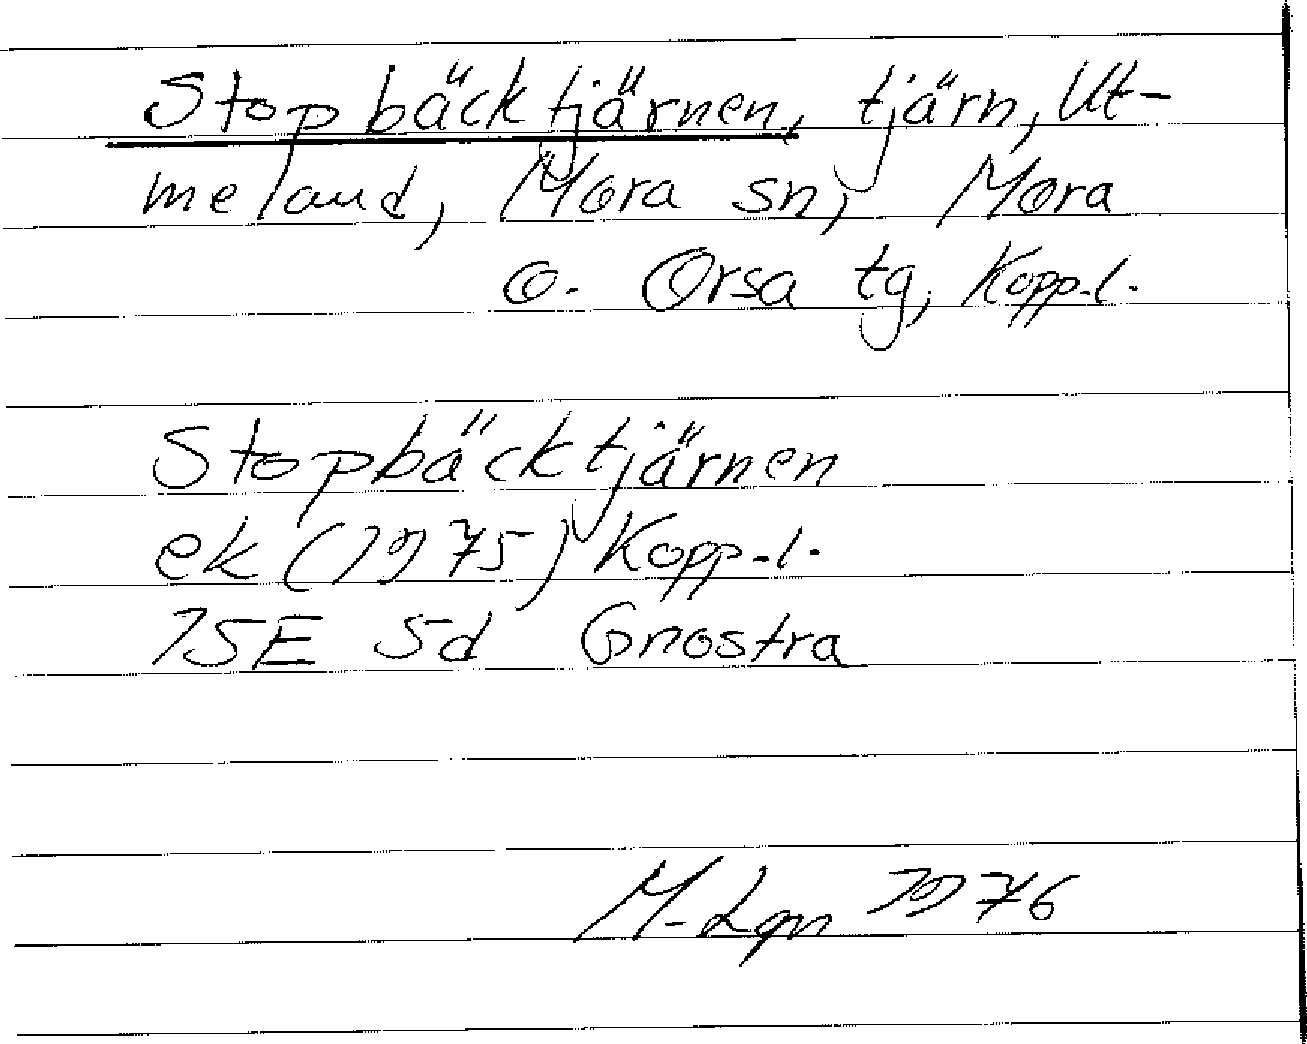 Stopbäcktjärnen, tjärn, Ut-
meland, Mora sn, Mora
o. Orsa tg, Kopp.l.
Stopbäcktjärnen
ek (1975) Kopp.l.
15E 5d Gnostra
M. Lgn 1976